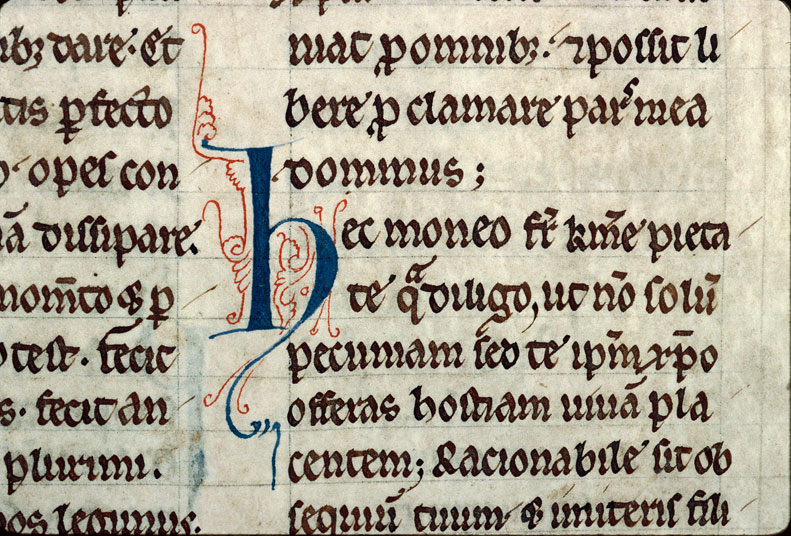 ibꝫ dare. Et
tis ꝑfecto
opes con
ā dissipare.
nom̄to ꝑ
test. fecit
s. fecit an
plurimi.
os legimus.
niat ꝓ omnibꝫ. ⁊ possit li
bere ꝓ clamare pars mea
dominus;
Hec moneo fr̄ km̄e pieta
te qᵃ diligo, ut nō solū
pecuniam sed te ip̄m xp̄o
offeras hostiam uiuā pla
centem; Racionabile sit ob
sequiū tuum. imiteris fili